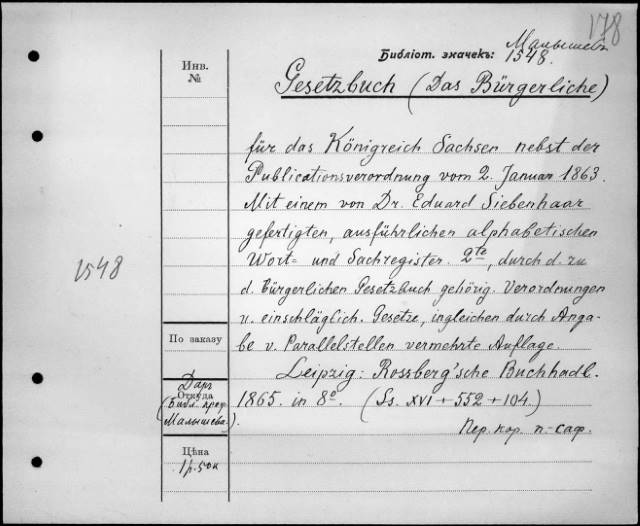 178
Малышева
Библіот. значекъ: 1548.
Инв.
№
Gesetzbuch (Das Bürgerliche)
für das Königreich Sachsen nebst der
Publicationsverordnung vom 2. Januar 1863.
Mit einem von Dr. Eduard Siebenhaar
gefertigten, ausführlichen alphabetischen
Wort- und Sachregister. 2te, durch d. zu
1548
d. bürgerlichen Gesetzbuch gehörig. Verordnungen
u. einschläglich. Gesetze, ingleichen durch Anga-
По заказу
be v. Parallelstellen vermehrte Auflage.
Leipzig: Rossberg'sche Buchhadl.
Даръ
Откуда
(Библ. проф.
Малышева.)
1865. in 8º. (Ss. XVI + 552 + 104.)
Пер. кор. п.-саф.
Цѣна
1 р. 50 к